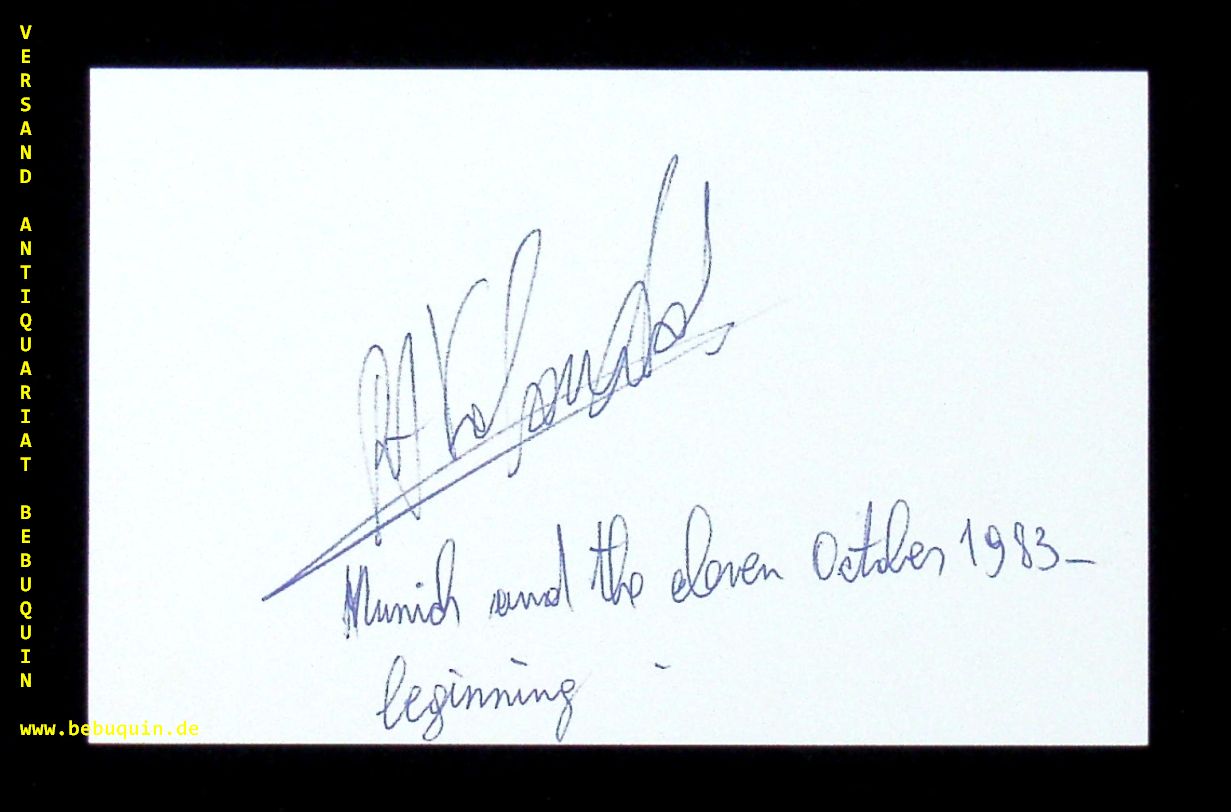 VERSAND ANTIQUARIAT BEBUQUIN
Munich and the eleven October 1983_
beginning
www.bebuquin.de